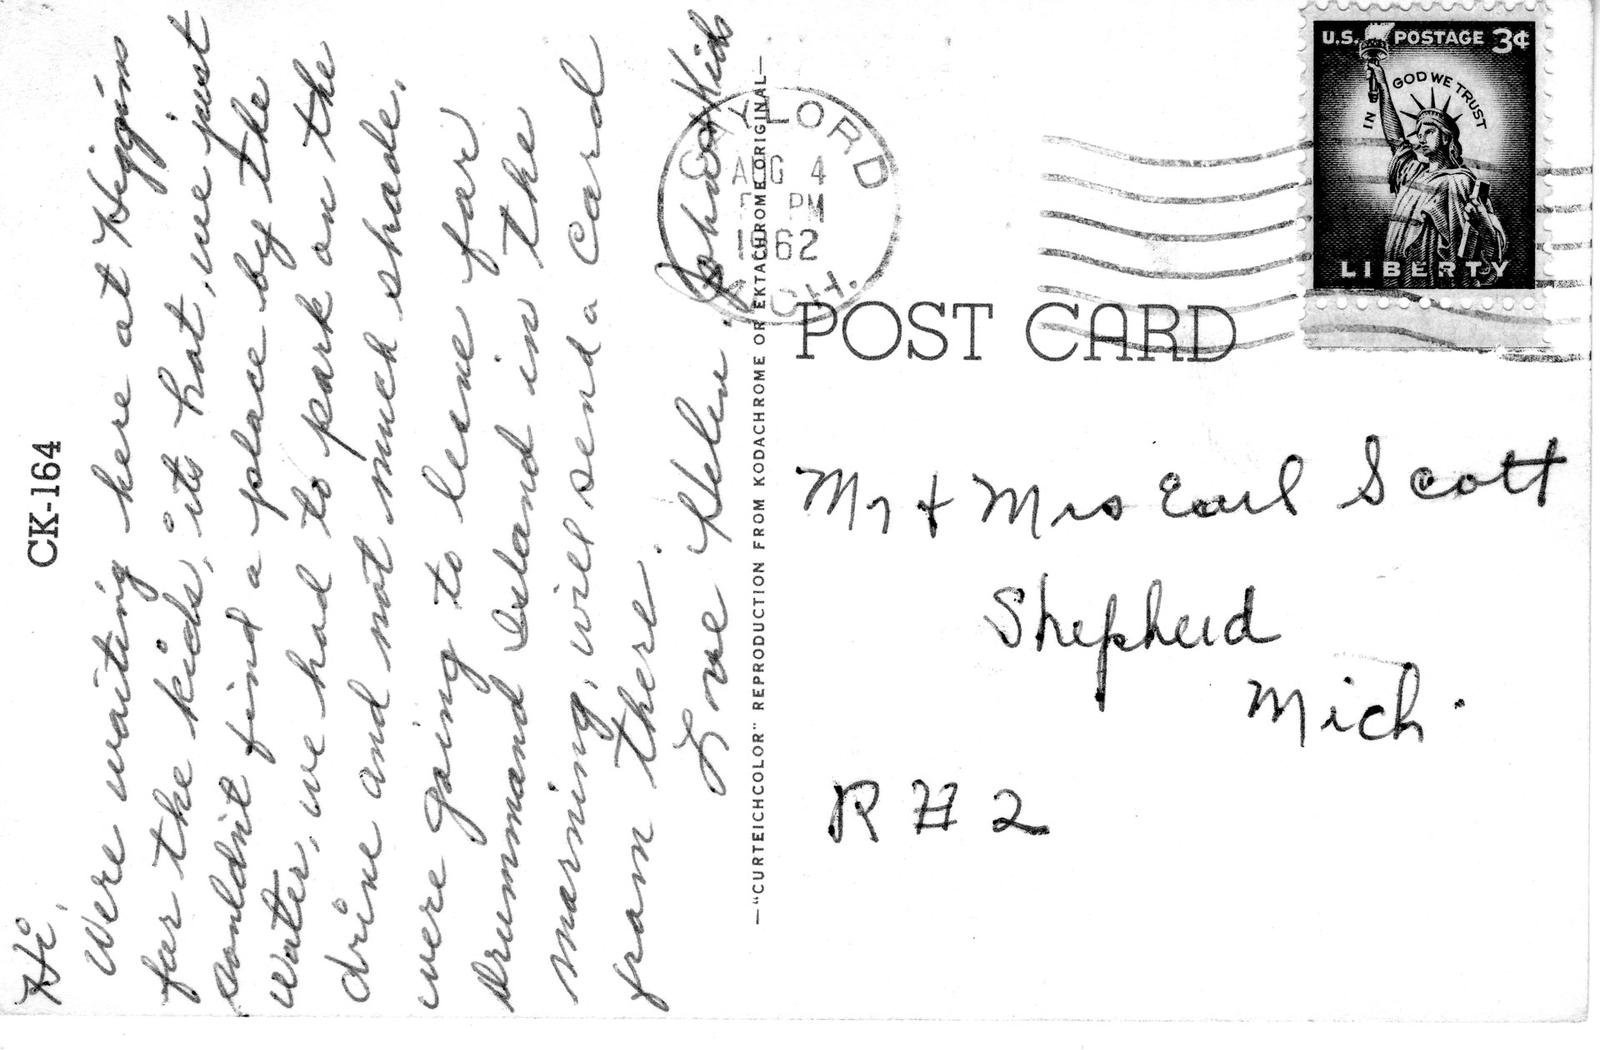 Hi,
Were waiting here at Higgins
for the kids, its hot, we just
couldnt find a place by the
water, we had to park on the
drive and not much shade.
were going to leave for
Drummand Island in the
marning, will send a card
from there.
Love Helen. John & Kids
CK-164
—"CURTEICHCOLOR" REPRODUCTION FROM KODACHROME OR EKTACHROME ORIGINAL—
GAYLORD
AUG 4
PM
1962
MICH.
U.S. POSTAGE 3¢
IN GOD WE TRUST
LIBERTY
POST CARD
Mr & Mrs Earl Scott
Shepherd
Mich.
R # 2